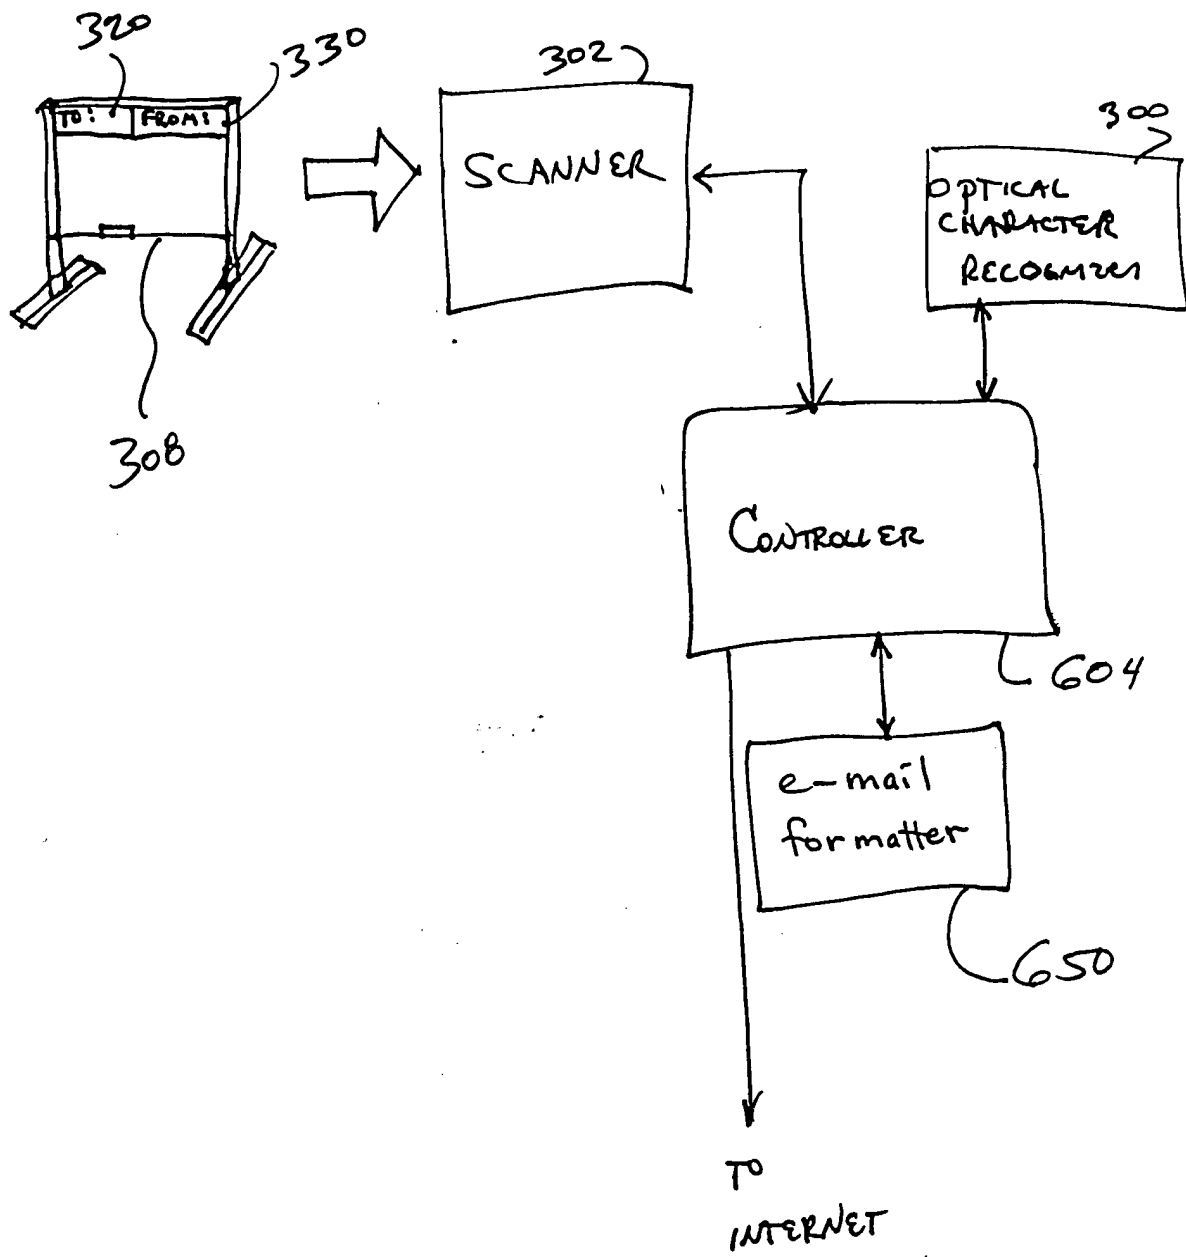 320
330
302
TO:
FROM:
SCANNER
300
OPTICAL
CHARACTER
RECOGNIZER
308
CONTROLLER
604
e-mail
formatter
650
TO
INTERNET